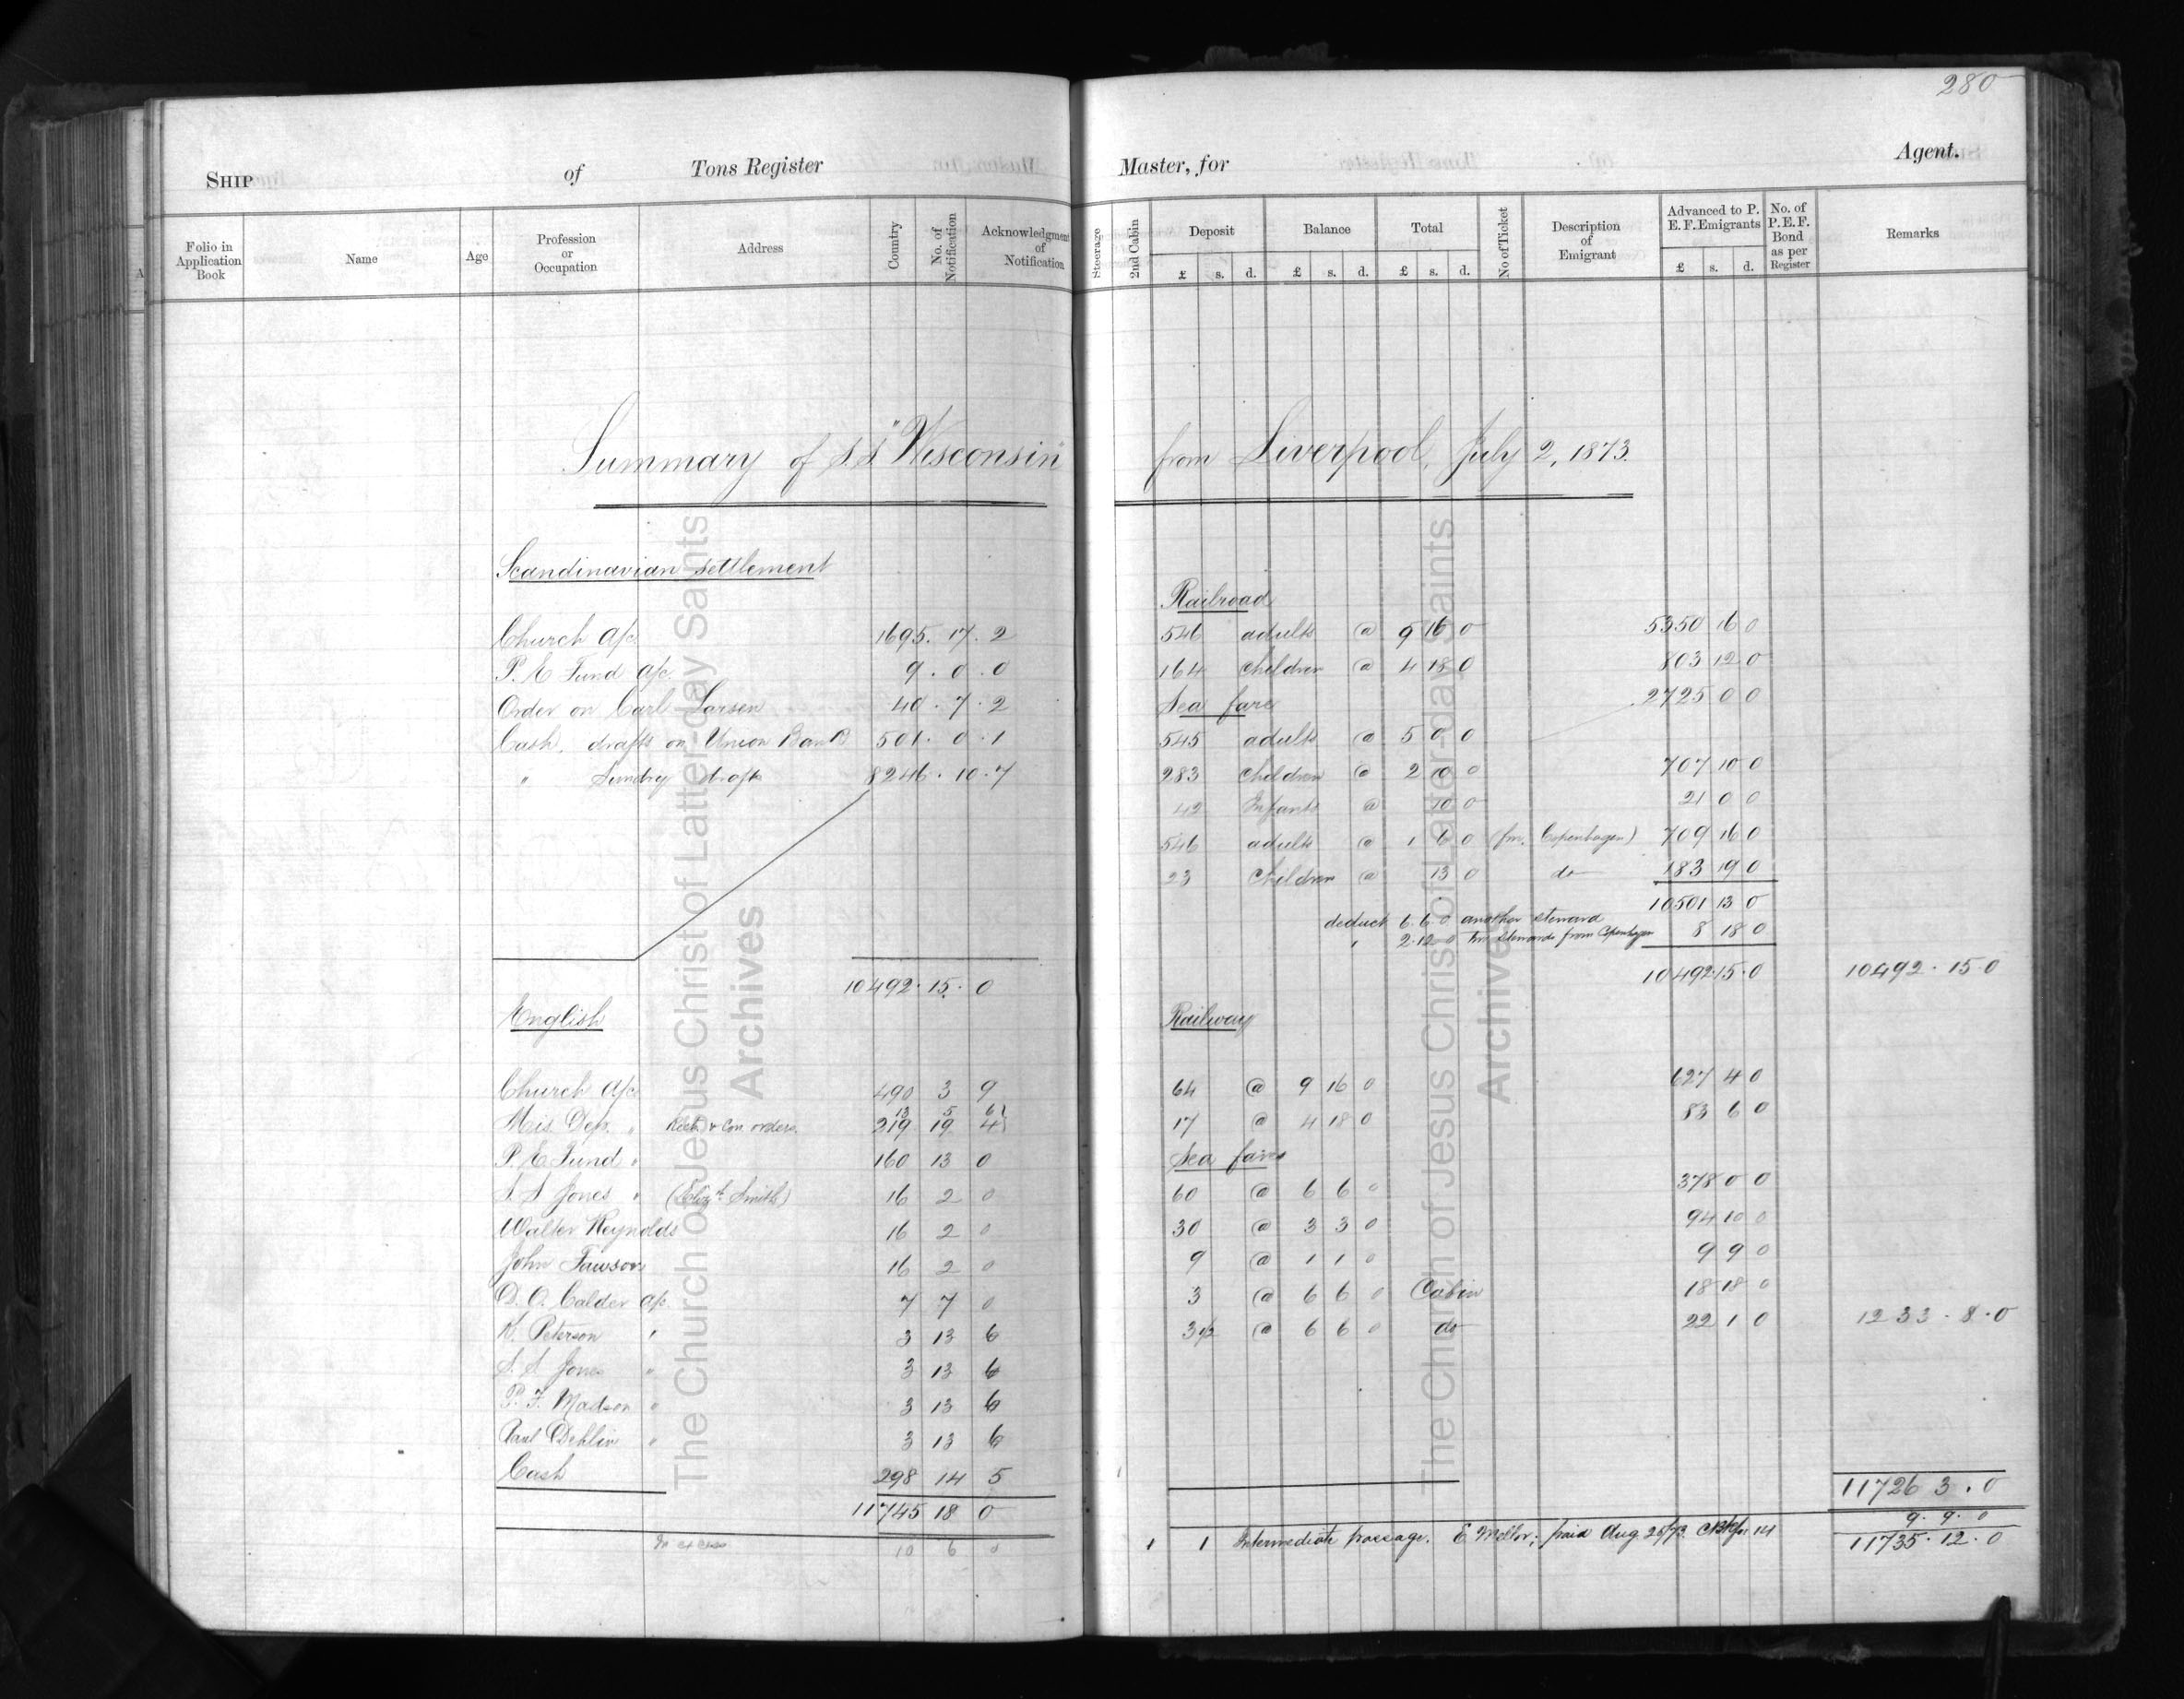 280
SHIP of Tons Register Master, for Agent.
Folio in Application Book Name Age Profession or Occupation Address Country No. of Notification Acknowledgment of Notification Steerage 2nd Cabin Deposit Balance Total No of Ticket Description of Emigrant Advanced to P. E. F. Emigrants No. of P.E.F. Bond as per Register Remarks
£ s. d. £ s. d. £ s. d. £ s. d.
Summary of S.S. "Wisconsin" from Liverpool, July 2, 1873.
Scandinavian settlement
Church a/c 1695. 17. 2
P. E Fund a/c 9. 0. 0
Order on Carl Larsen 40. 7. 2
Cash, drafts on Union Bank 501. 0. 1
" Sundry drafts 8246. 10. 7
10492. 15. 0
English
Church a/c 490 3 9
13 5 6
Mis. Dep. " & Con. orders. 219 19 4
P. E Fund " 160 13 0
S. S Jones " (Elizth Smith) 16 2 0
Walter Reynolds 16 2 0
John Fawson 16 2 0
D. O. Calder a/c 7 7 0
K. Peterson " 3 13 6
S. S Jones " 3 13 6
P. F. Madson " 3 13 6
Paul Dehlin " 3 13 6
Cash 298 14 5
11745 18 0
In excess 10 6 0
Railroad
546 adults @ 9 16 0 5350 16 0
164 children @ 4 18 0 803 12 0
Sea fare 2725 0 0
545 adults @ 5 0 0
283 Children @ 2 10 0 707 10 0
42 Infants @ 10 0 21 0 0
546 adults @ 1 6 0 (fm. Copenhagen) 709 16 0
23 Children @ 13 0 do 183 19 0
10501 13 0
deduct 6. 6. 0 another steward
" 2. 12 0 stewards from Copenhagen 8 18 0
10492 15. 0 10492. 15. 0
Railway
64 @ 9 16 0 627 4 0
17 @ 4 18 0 83 6 0
Sea fares
60 @ 6 6 0 378 0 0
30 @ 3 3 0 94 10 0
9 @ 1 1 0 9 9 0
3 @ 6 6 0 Cabin 18 18 0
3 1/2 @ 6 6 0 do 22 1 0 1233. 8. 0
11726 3. 0
9. 9. 0
1 1 Intermediate passage. E Mellor; paid Aug 25/73. 11735. 12. 0
The Church of Jesus Christ of Latter-day Saints
Archives
The Church of Jesus Christ of Latter-day Saints
Archives